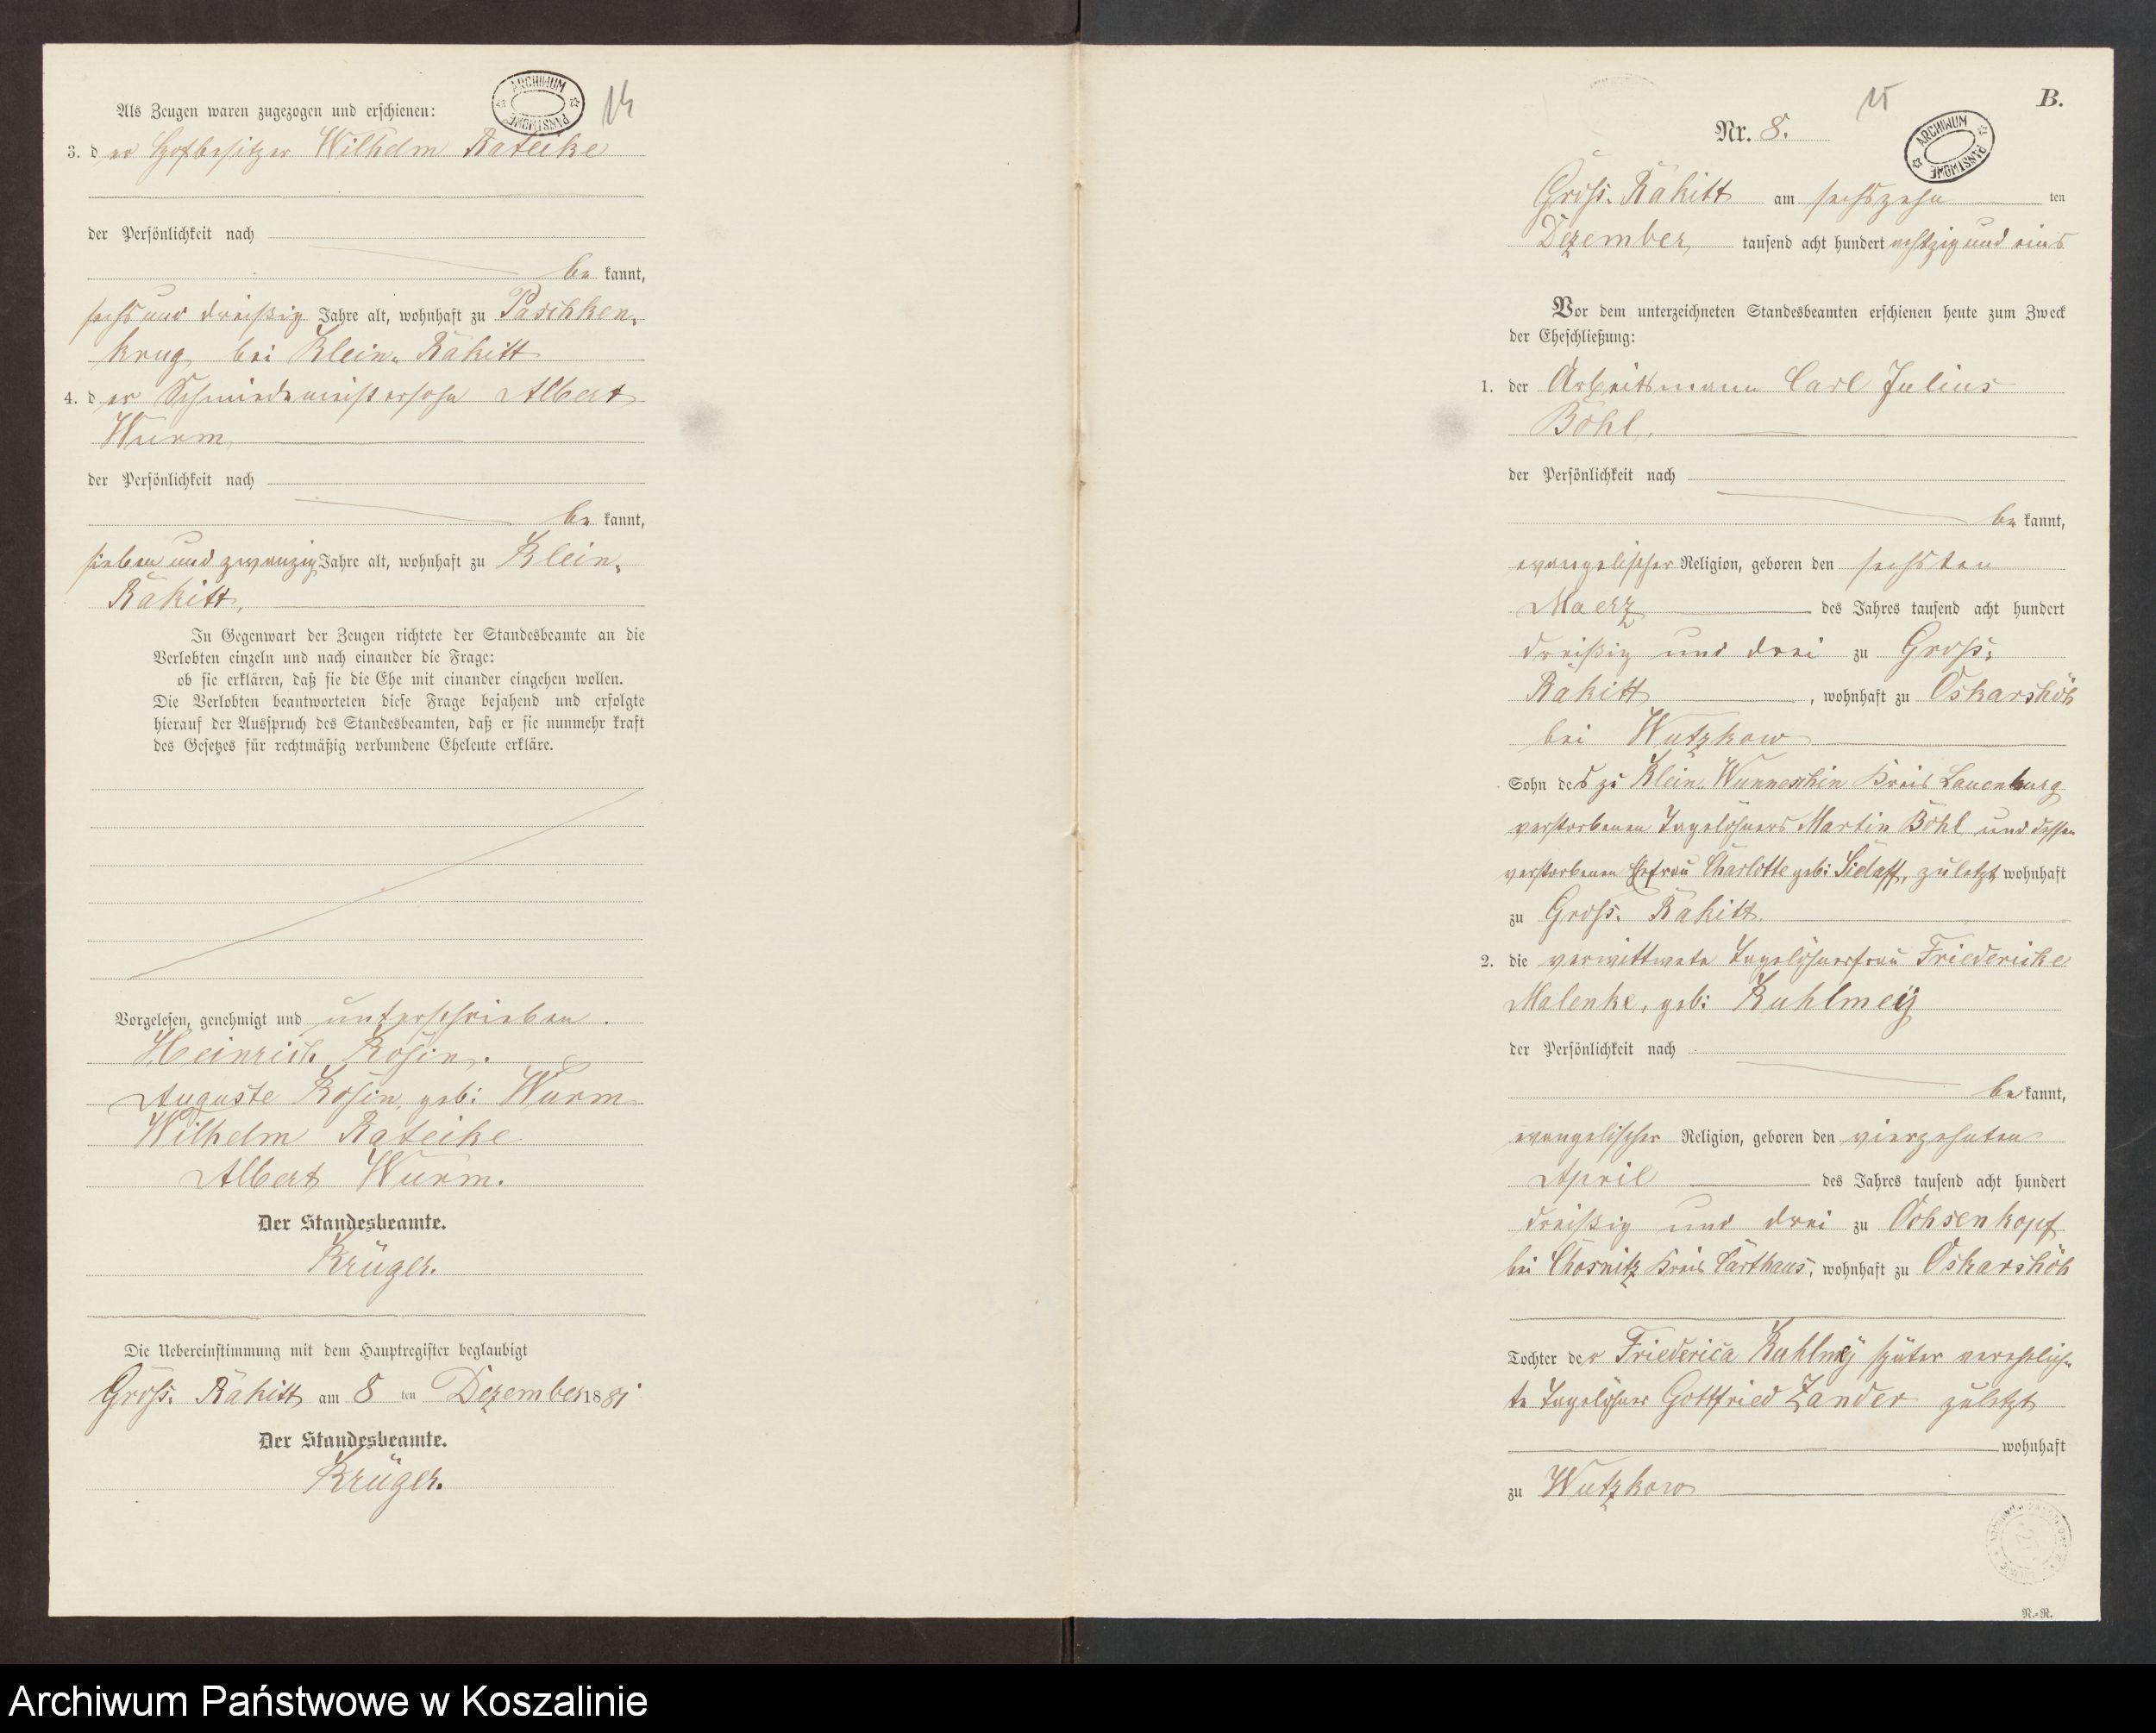 ARCHIWUM PAŃSTWOWE
14
Als Zeugen waren zugezogen und erschienen:
3. der Hofbesitzer Wilhelm Rateike
der Persönlichkeit nach
be kannt,
sechs und dreißig Jahre alt, wohnhaft zu Paschken-
krug bei Klein-Rakitt
4. der Schmiedemeistersohn Albert
Wurm
der Persönlichkeit nach
be kannt,
sieben und zwanzig Jahre alt, wohnhaft zu Klein-
Rakitt,
In Gegenwart der Zeugen richtete der Standesbeamte an die
Verlobten einzeln und nach einander die Frage:
ob sie erklären, daß sie die Ehe mit einander eingehen wollen.
Die Verlobten beantworteten diese Frage bejahend und erfolgte
hierauf der Ausspruch des Standesbeamten, daß er sie nunmehr kraft
des Gesetzes für rechtmäßig verbundene Eheleute erkläre.
Vorgelesen, genehmigt und unterschrieben.
Heinrich Rosin.
Auguste Rosin, geb: Wurm
Wilhelm Rateike
Albert Wurm.
Der Standesbeamte.
Krüger.
Die Uebereinstimmung mit dem Hauptregister beglaubigt
Gross-Rakitt am 8 ten Dezember 1881
Der Standesbeamte.
Krüger.
15
B.
Nr. 8.
ARCHIWUM PAŃSTWOWE
Gross-Rakitt am sechszehn ten
Dezember tausend acht hundert achtzig und eins
Vor dem unterzeichneten Standesbeamten erschienen heute zum Zweck
der Eheschließung:
1. der Arbeitsmann Carl Julius
Böhl,
der Persönlichkeit nach
be kannt,
evangelischer Religion, geboren den sechsten
Maerz des Jahres tausend acht hundert
dreißig und drei zu Gross-
Rakitt, wohnhaft zu Oskarshöh
bei Wutzkow
Sohn des zu Klein-Wunneschin Kreis Lauenburg
verstorbenen Tagelöhners Martin Böhl und dessen
verstorbenen Ehefrau Charlotte geb: Sielaff, zuletzt wohnhaft
zu Gross-Rakitt.
2. die verwittwete Tagelöhnerfrau Friedericke
Malenke, geb: Kuhlmeÿ
der Persönlichkeit nach
be kannt,
evangelischer Religion, geboren den vierzehnten
April des Jahres tausend acht hundert
dreißig und drei zu Ochsenkopf
bei Chosnitz Kreis Carthaus, wohnhaft zu Oskarshöh
Tochter der Friederica Kuhlmeÿ später verehelich-
te Tagelöhner Gottfried Zander zuletzt
wohnhaft
zu Wutzkow
N.-R.
Archiwum Państwowe w Koszalinie